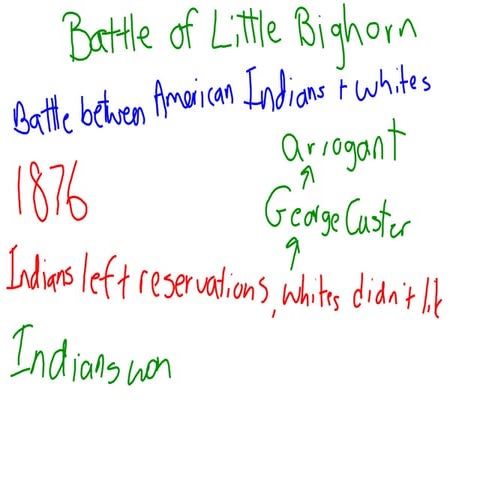 Battle of Little Bighorn
Battle between American Indians + whites
Arrogant
1876
George Custer
Indians left reservations, whites didn't lik
Indians won